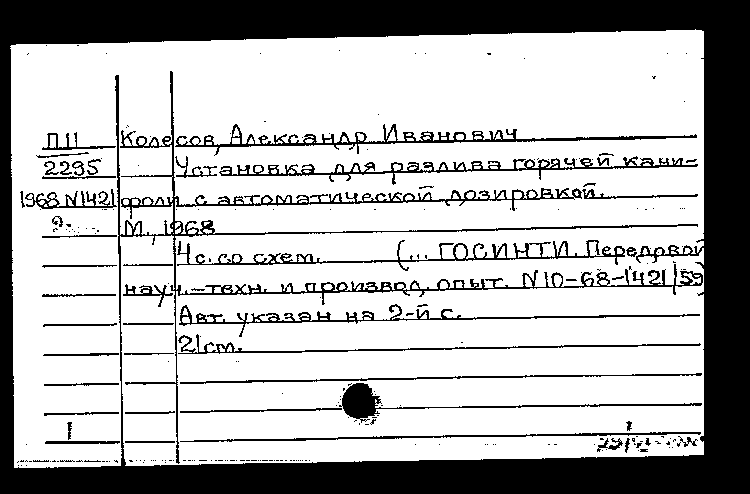 П11 Колесов, Александр Иванович
2295 Установка для разлива горячей кани-
1968 N1421 фоли с автоматической дозировкой.
М., 1968
4с. со схем. (... ГОСИНТИ. Передовой
науч.-техн. и производ. опыт. N10-68-1421/59)
Авт. указан на 2-й с.
21см.